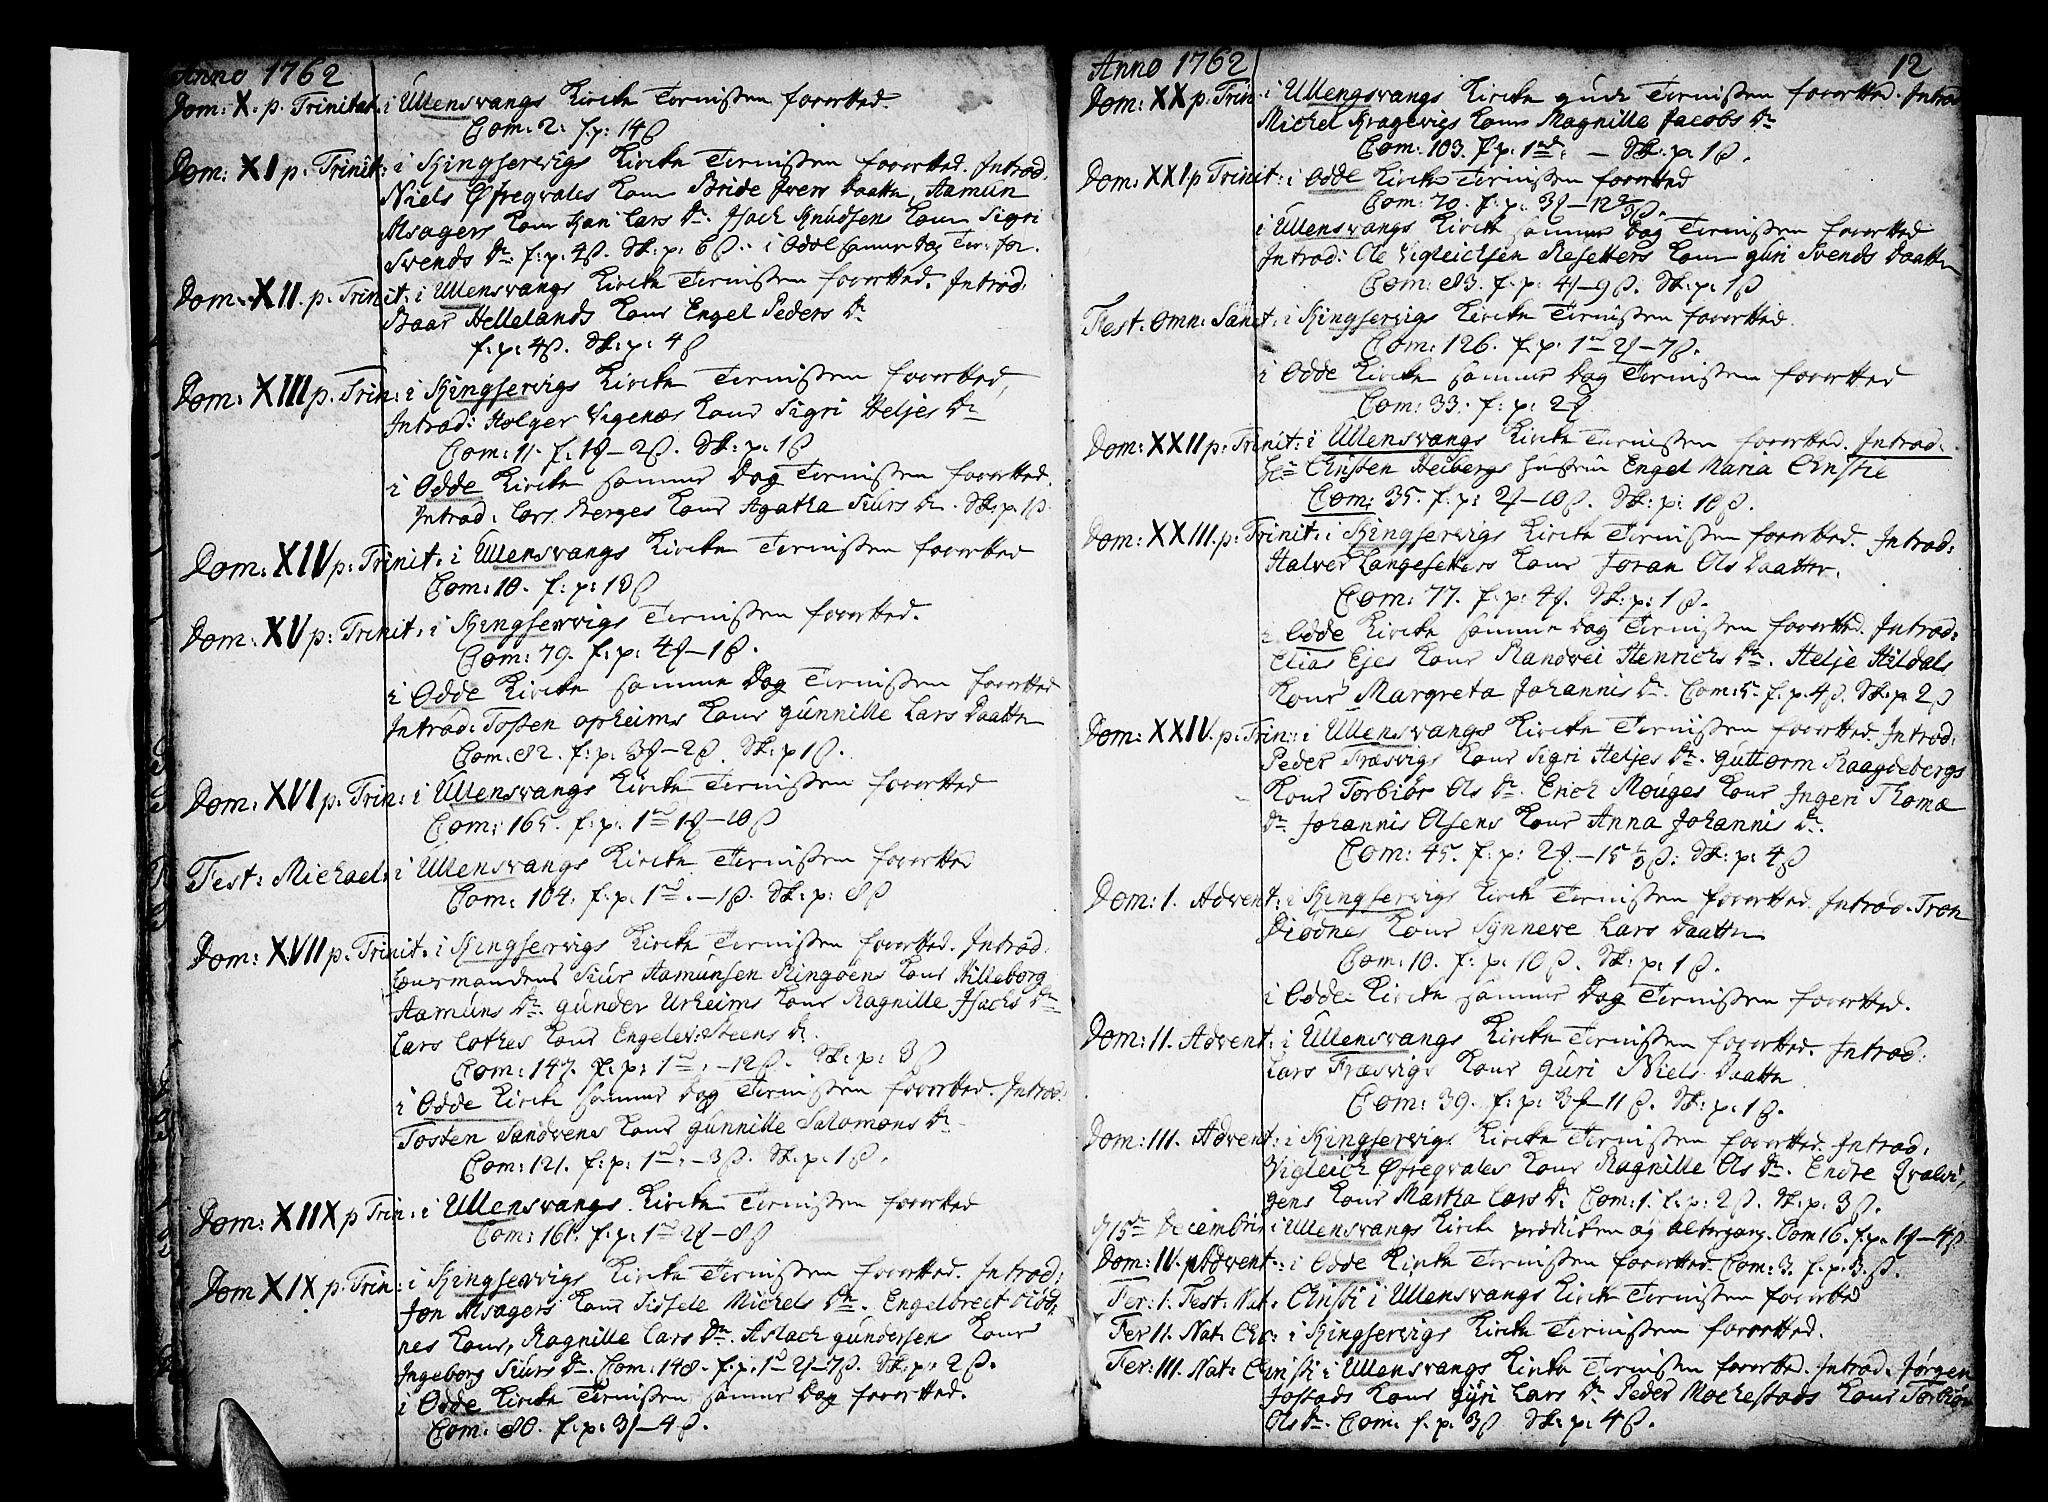 Anno 1762
Dom: X. p. Trinitat: i Ullensvangs Kircke Tienisten forretted.
Com: 2: f: p: 14 ß
Dom: XI p. Trinit: i Kingservigs Kircke Tienisten forretted. Introd:
Niels Øfregvales Kone Bride Ivers Daatter, Aamun
Alsagers Kone Kari Lars Dr. Isach Knudsens Kone Sigri
Svends Dr. f: p: 4 ß. Sk: p: 6 ß. i Odde samme Dag Tien: for.
Dom: XII. p. Trinit: i Ullensvangs Kircke Tienisten forretted. Introd:
Baar Hellelands Kone Engel Peders Dr
f: p: 4 ß. Sk: p: 4 ß
Dom: XIII p. Trin: i Kingservigs Kircke Tienisten forretted,
Introd: Holger Vigenes Kone Sigri Heljes Dr
Com: 11. f. 1 ℳ – 2 ß. Sk: p: 1 ß
i Odde Kircke samme Dag Tienisten forretted.
Introd: Lars Berges Kone Agatha Siurs Dr. Sk: p. 1 ß.
Dom: XIV p: Trinit: i Ullensvangs Kircke Tienisten forretted
Com: 10. f: p: 10 ß
Dom: XV p: Trinit: i Kingservigs Tienisten forretted.
Com: 79. f: p: 4 ℳ – 1 ß.
i Odde Kircke samme Dag Tienisten forretted
Introd: Tosten Opheims Kone Gunnille Lars Daatter
Com: 82. f: p: 3 ℳ – 2 ß. Sk: p 1 ß.
Dom: XVI p: Trin: i Ullensvangs Kircke Tienisten forretted
Com: 165. f: p: 1 rd 1 ℳ – 10 ß
Fest: Michael: i Ullensvangs Kircke Tienisten forrettet
Com: 104. f: p: 1 rd. – 1 ß. Sk: p: 8 ß
Dom: XVII p. Trinit: i Kingservigs Kircke Tienisten forretted. Introd:
Siur Aamunsen Ringøens Kone Hilleborg
Aamuns Dr. Gunder Urheims Kone Ragnille Isachs Dr
Lars Lothes Kone Engelev: Steens Dr.
Com: 147. f: p: 1 rd: – 12 ß. Sk: p: 3 ß
i Odde Kircke samme Dag Tienisten forretted. Introd:
Tosten Sandvens Kone Gunnille Salomons Dr
Com: 121. f: p: 1 rd: – 3 ß. Sk: p: 1 ß.
Dom: XIIX p Trin: i Ullensvangs Kircke Tienisten forretted
Com: 161. f: p: 1 rd 2 ℳ – 8 ß
Dom XIX p: Trin: i Kingservigs Kircke Tienisten forretted. Introd:
Jon Alsagers Kone Sissele Michels Dr. Engelbrect Diød:
nes Kone, Ragnille Lars Dr. Aslach Gundersen Kone
Ingeborg Siurs Dr. Com: 148. f: p: 1 rd 2 ℳ – 7 ß. Sk: p: 2 ß.
i Odde Kircke Tienisten samme Dag forretted.
Com: 80. f. p: 3 ℳ – 4 ß.
Anno 1762 12
Dom: XX p: Trin: i Ullengsvangs Kircke Guds Tienisten forretted. Introd
Michel Kragevigs Kone Magnille Jacobs Dr
Com: 103. f: p: 1 rd: – Sk: p: 1 ß.
Dom: XXI p Trinit: i Odde Kircke Tienisten forretted
Com: 70. f: p: 3 ℳ – 12 ß.
i Ullensvangs Kircke samme Dag Tienisten forretted
Introd: Ole Vigleichsen Resetters Kone Guri Svends Daatter
Com: 83. f: p: 4 ℳ – 9 ß. Sk: p: 1 ß
Fest: Omn: Sanct: i Kingservigs Kircke Tienisten forretted.
Com: 126. f. p. 1 rd 2 ℳ – 7 ß.
i Odde Kircke samme Dag Tienisten forretted
Com: 33. f: p: 2 ℳ
Dom: XXII p: Trinit: i Ullensvangs Kircke Tienisten forretted. Introd:
Hr Christen Heibergs Hustrue Engel Maria Christie
Com: 35. f: p: 2 ℳ – 10 ß. Sk: p: 10 ß.
Dom: XXIII. p: Trinit: i Kingservigs Kircke Tienisten forretted. Introd:
Halver Langesetters Kone Joran Ols Daatter.
Com: 77. f: p: 4 ℳ. Sk: p: 1 ß.
i Odde Kircke samme Dag Tienisten forretted. Introd:
Elias Ejes Kone Randvei Henrichs Dr. Helje Hildals
Kone Margreta Johannis Dr. Com: 5. f. p. 4 ß. Sk: p. 2 ß
Dom: XXIV. p: Trin: i Ullensvangs Kircke Tienisten forretted. Introd:
Peder Fræsvigs Kone Sigri Heljes Dr. Guttorm Raagdebergs
Kone Torbiør Ols Dr. Erich Mouges Kone Ingeri Thomæ
Dr Johannis Olsens Kone Anna Johannis Dr.
Com: 45. f: p: 2 ℳ – 15 ß: Sk: p: 4 ß
Dom: I. Advent: i Kingservigs Kircke Tienisten forretted. Introd. Tron
Diødnes Kone Synneve Lars Daatter
Com: 10. f: p: 10 ß. Sk: p: 1 ß.
i Odde Kircke samme Dag Tienisten forretted.
Dom: II. Advent: i Ullensvangs Kircke Tienisten forretted. Introd:
Lars Fræsvigs Kone Guri Niels Daatter
Com: 39. f: p: 3 ℳ – 11 ß. Sk: p: 1 ß.
Dom: III. Advent: i Kingservigs Kircke Tienisten forretted. Introd:
Vigleich Øfregvales Kone Ragnille Ols Dr. Endre Qvalvi,
gens Kone Martha Lars Dr Com: 1. f: p: 2 ß. Sk: p: 3 ß.
d 15de Decembris i Ullensvangs Kircke prædicken og Altergang. Com 16. f. p. 1 ℳ – 4 ß
Dom: IV. p Advent: i Odde Kircke Tienisten forretted. Com: 3. f. p. 3. ß.
Fer: I. Fest: Nat: Christi i Ullensvangs Kircke Tienisten forretted
Fer II. Nat: Chr: i Kingservigs Kircke Tienisten forretted.
Fer: III. Nat: Christi i Ullensvangs Kircke Tienisten forrettet. Introd. Jørgen
Jostads Kone Guri Lars Dr Peder Mochestads Kone Torbiør
Ols Dr. Com: f. p: 3 ß Sk: p: 4 ß.